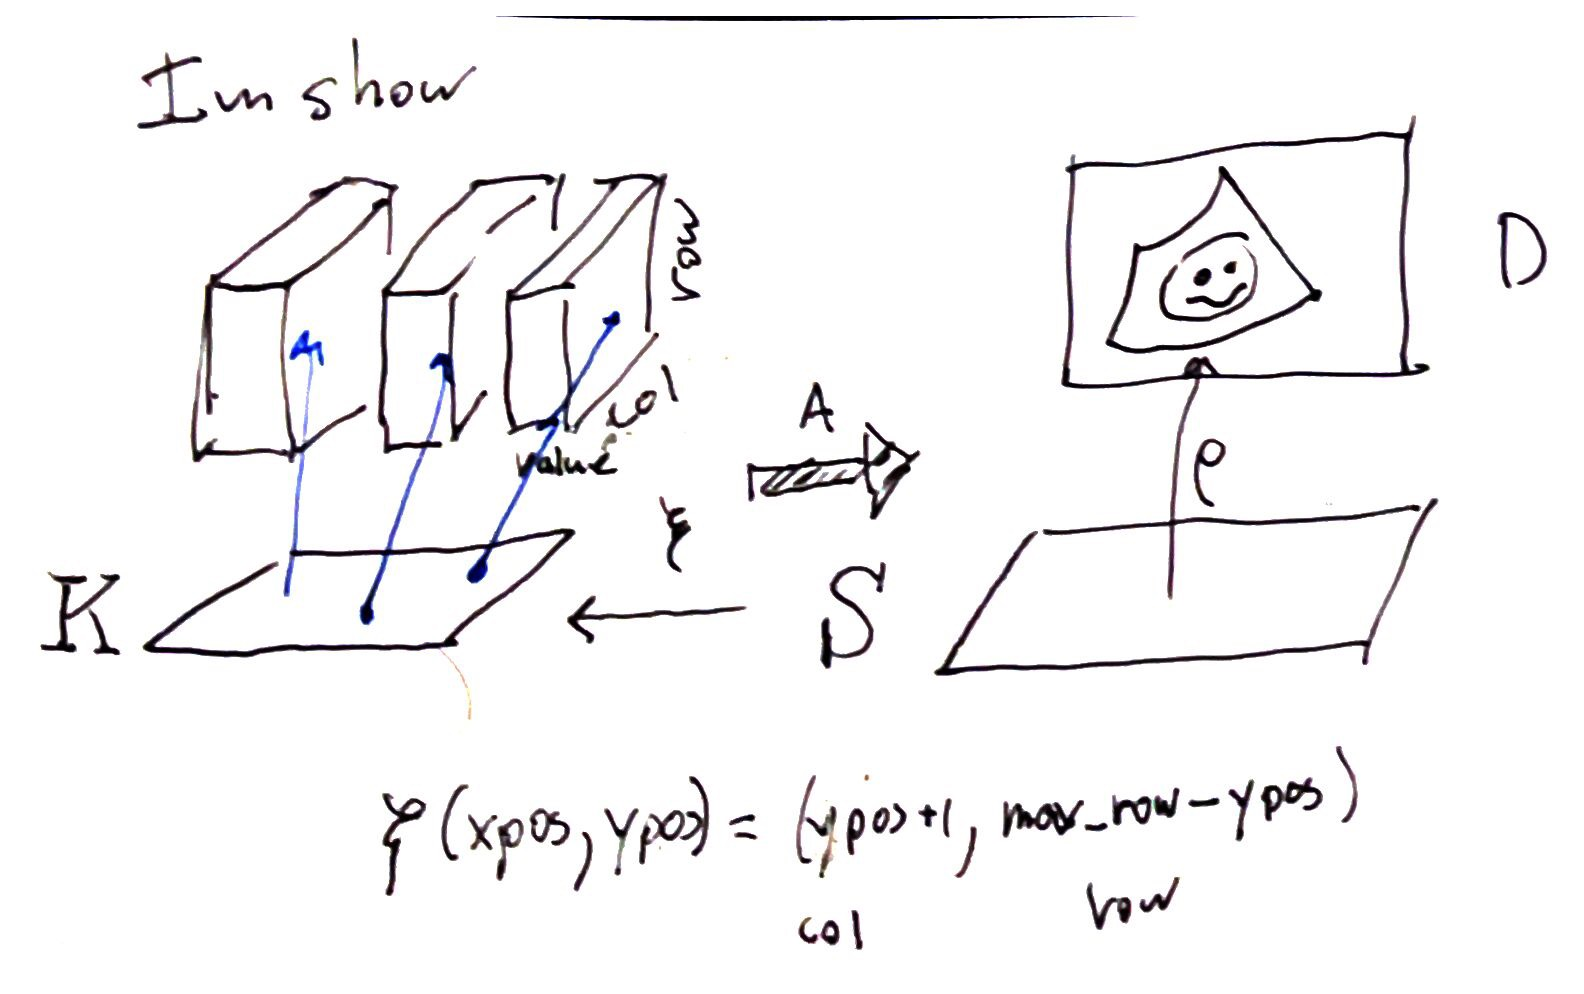 Imshow
row
D
col
A
value
ρ
ξ
K
S
ξ(xpos, ypos) = (ypos+1, max_row - ypos)
col row